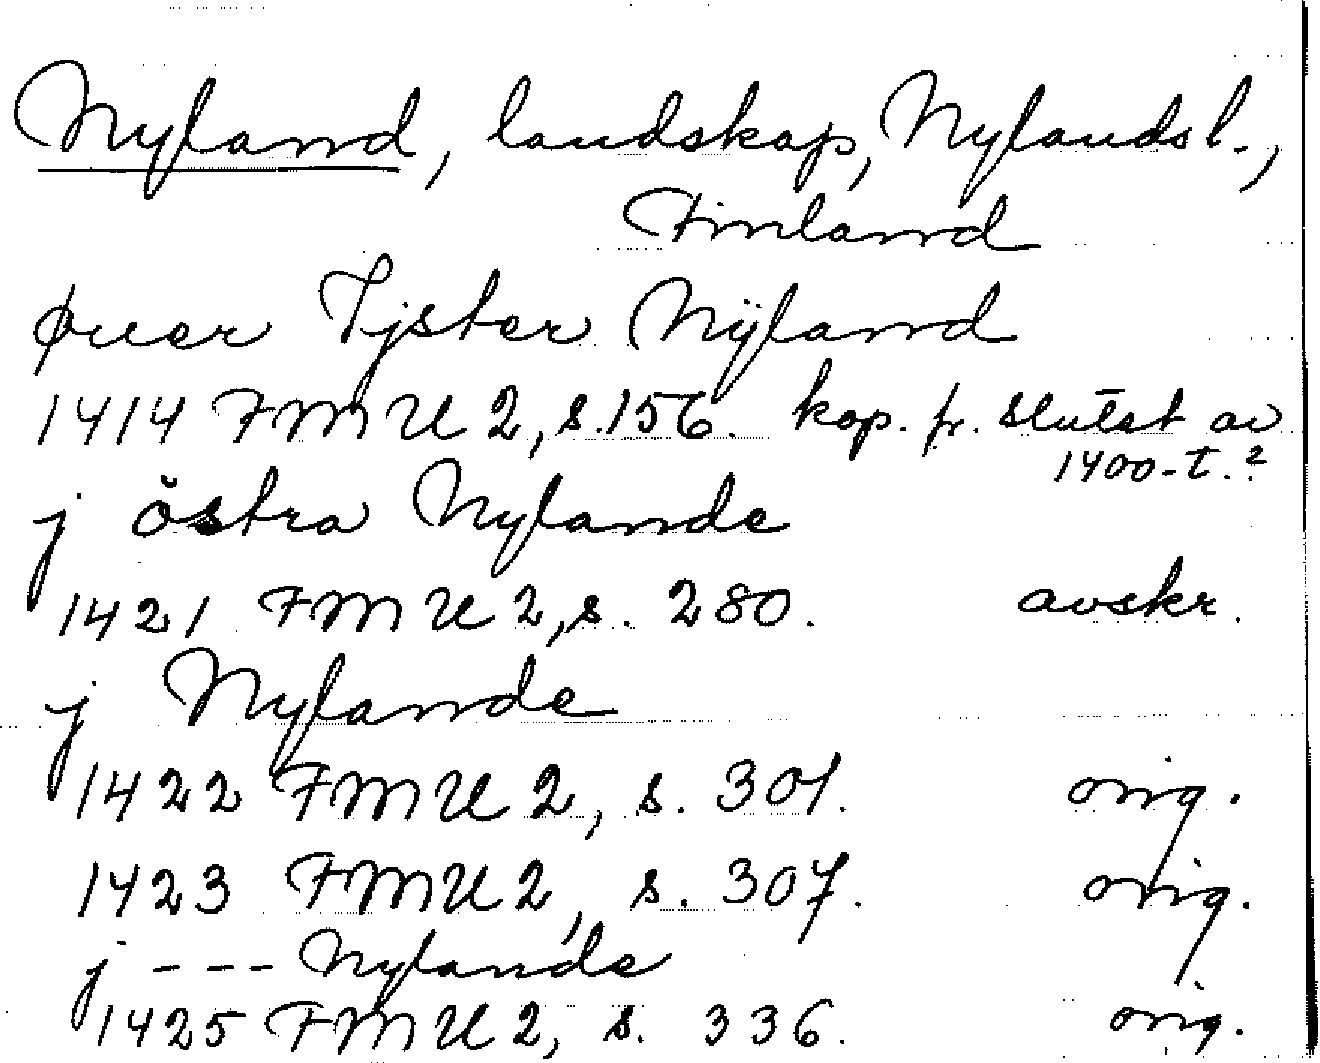 Nyland, landskap, Nylandsl.,
Finland
øuer Tjster Nÿland
1414 FMU 2, s. 156. kop. fr. slutet av
1400-t.?
j östra Nylande
1421 FMU 2, s. 280. avskr.
j Nylande
1422 FMU 2, s. 301. orig.
1423 FMU 2, s. 307. orig.
j --- Nylande
1425 FMU 2, s. 336. orig.